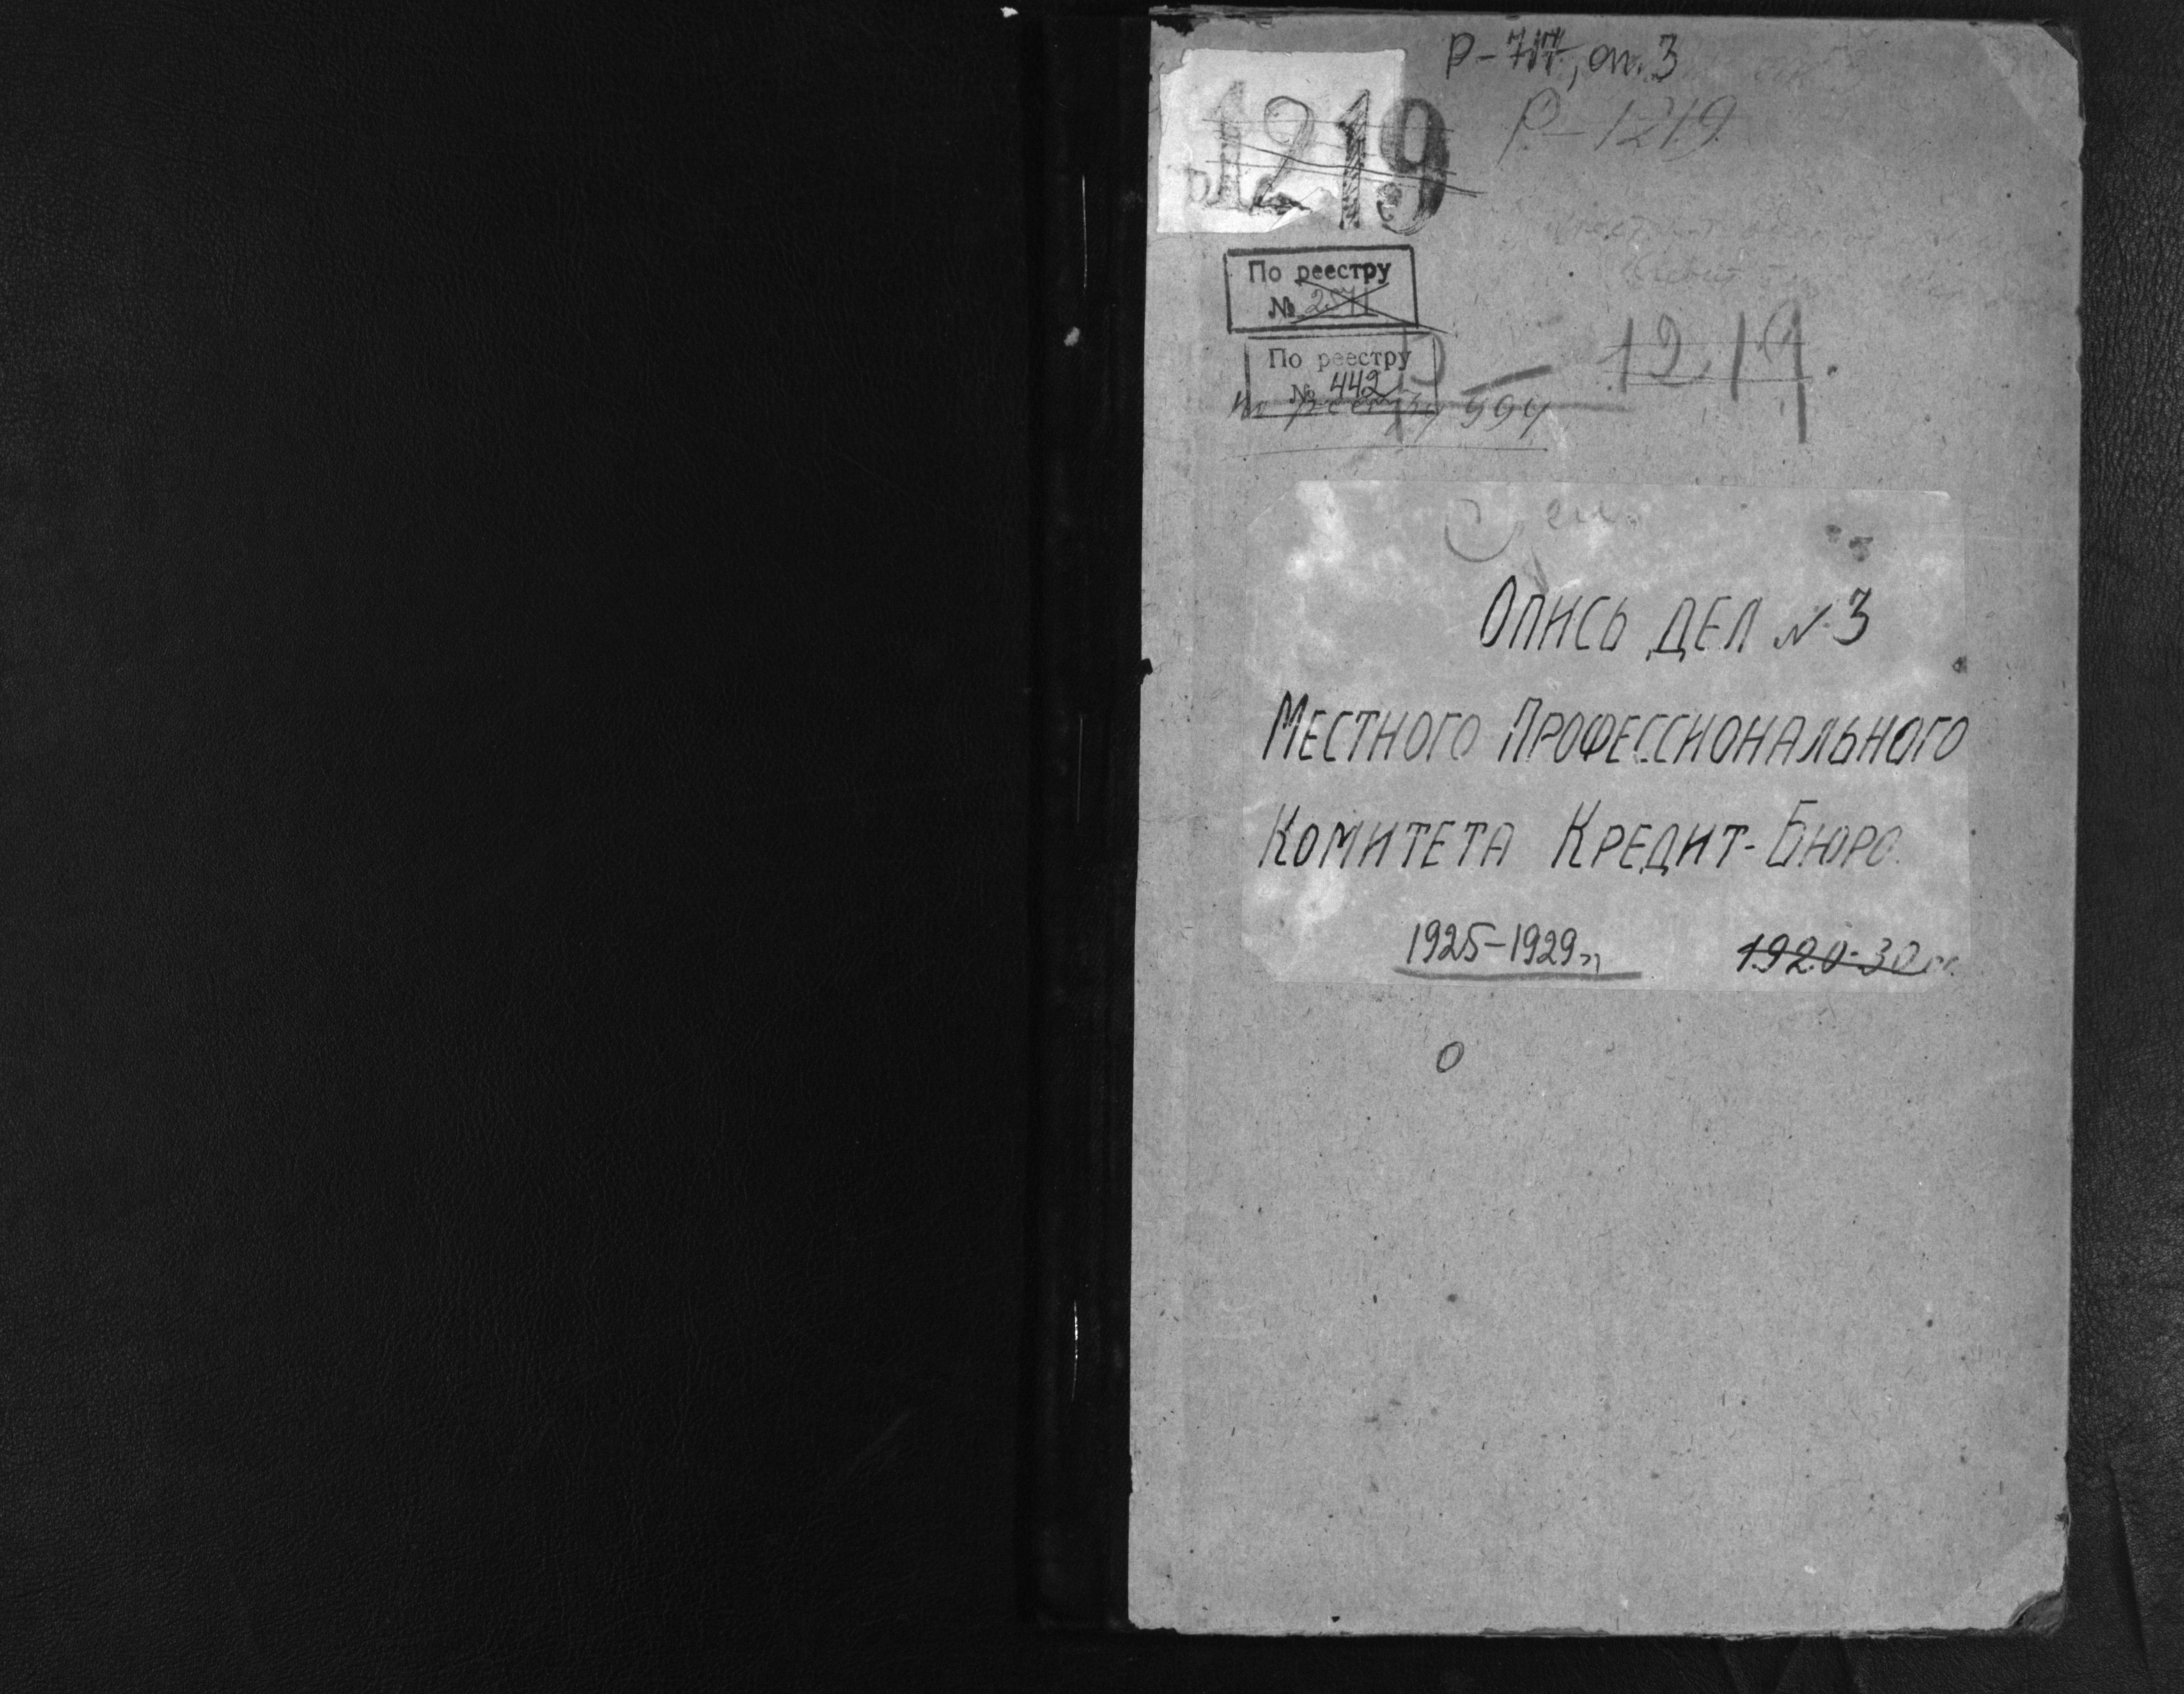 Р-717, оп. 3
1219
Р-1219
По реестру
№ 2571
По реестру
№ 442
Р-1219.
по реестру 994
Опись дел №3
Местного Профессионального
Комитета Кредит-Бюро.
1925-1929гг 1920-30гг.